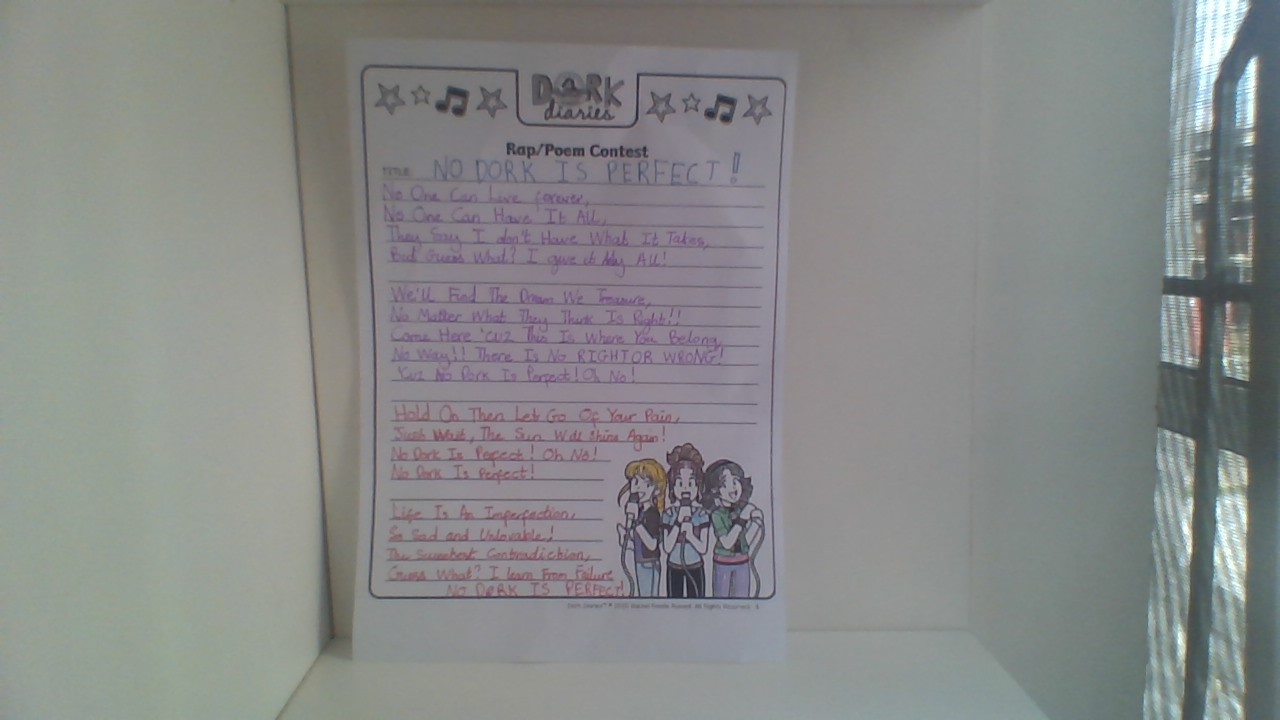 DORK
diaries
Rap/Poem Contest
TITLE: NO DORK IS PERFECT!
No One Can Live forever,
No One Can Have It All,
They Say I don't Have What It Takes,
But Guess What? I give it My ALL!
We'll Find The Dream We Treasure,
No Matter What They Think Is Right!!
Come Here 'cuz This Is Where You Belong,
No Way!! There Is No RIGHT OR WRONG!
'Cuz No Dork Is Perfect! Oh No!
Hold On Then Let Go Of Your Pain,
Just Wait, The Sun Will Shine Again!
No Dork Is Perfect! Oh No!
No Dork Is Perfect!
Life Is An Imperfection,
So Sad and Unlovable!
The Sweetest Contradiction,
Guess What? I learn From Failure
NO DORK IS PERFECT!